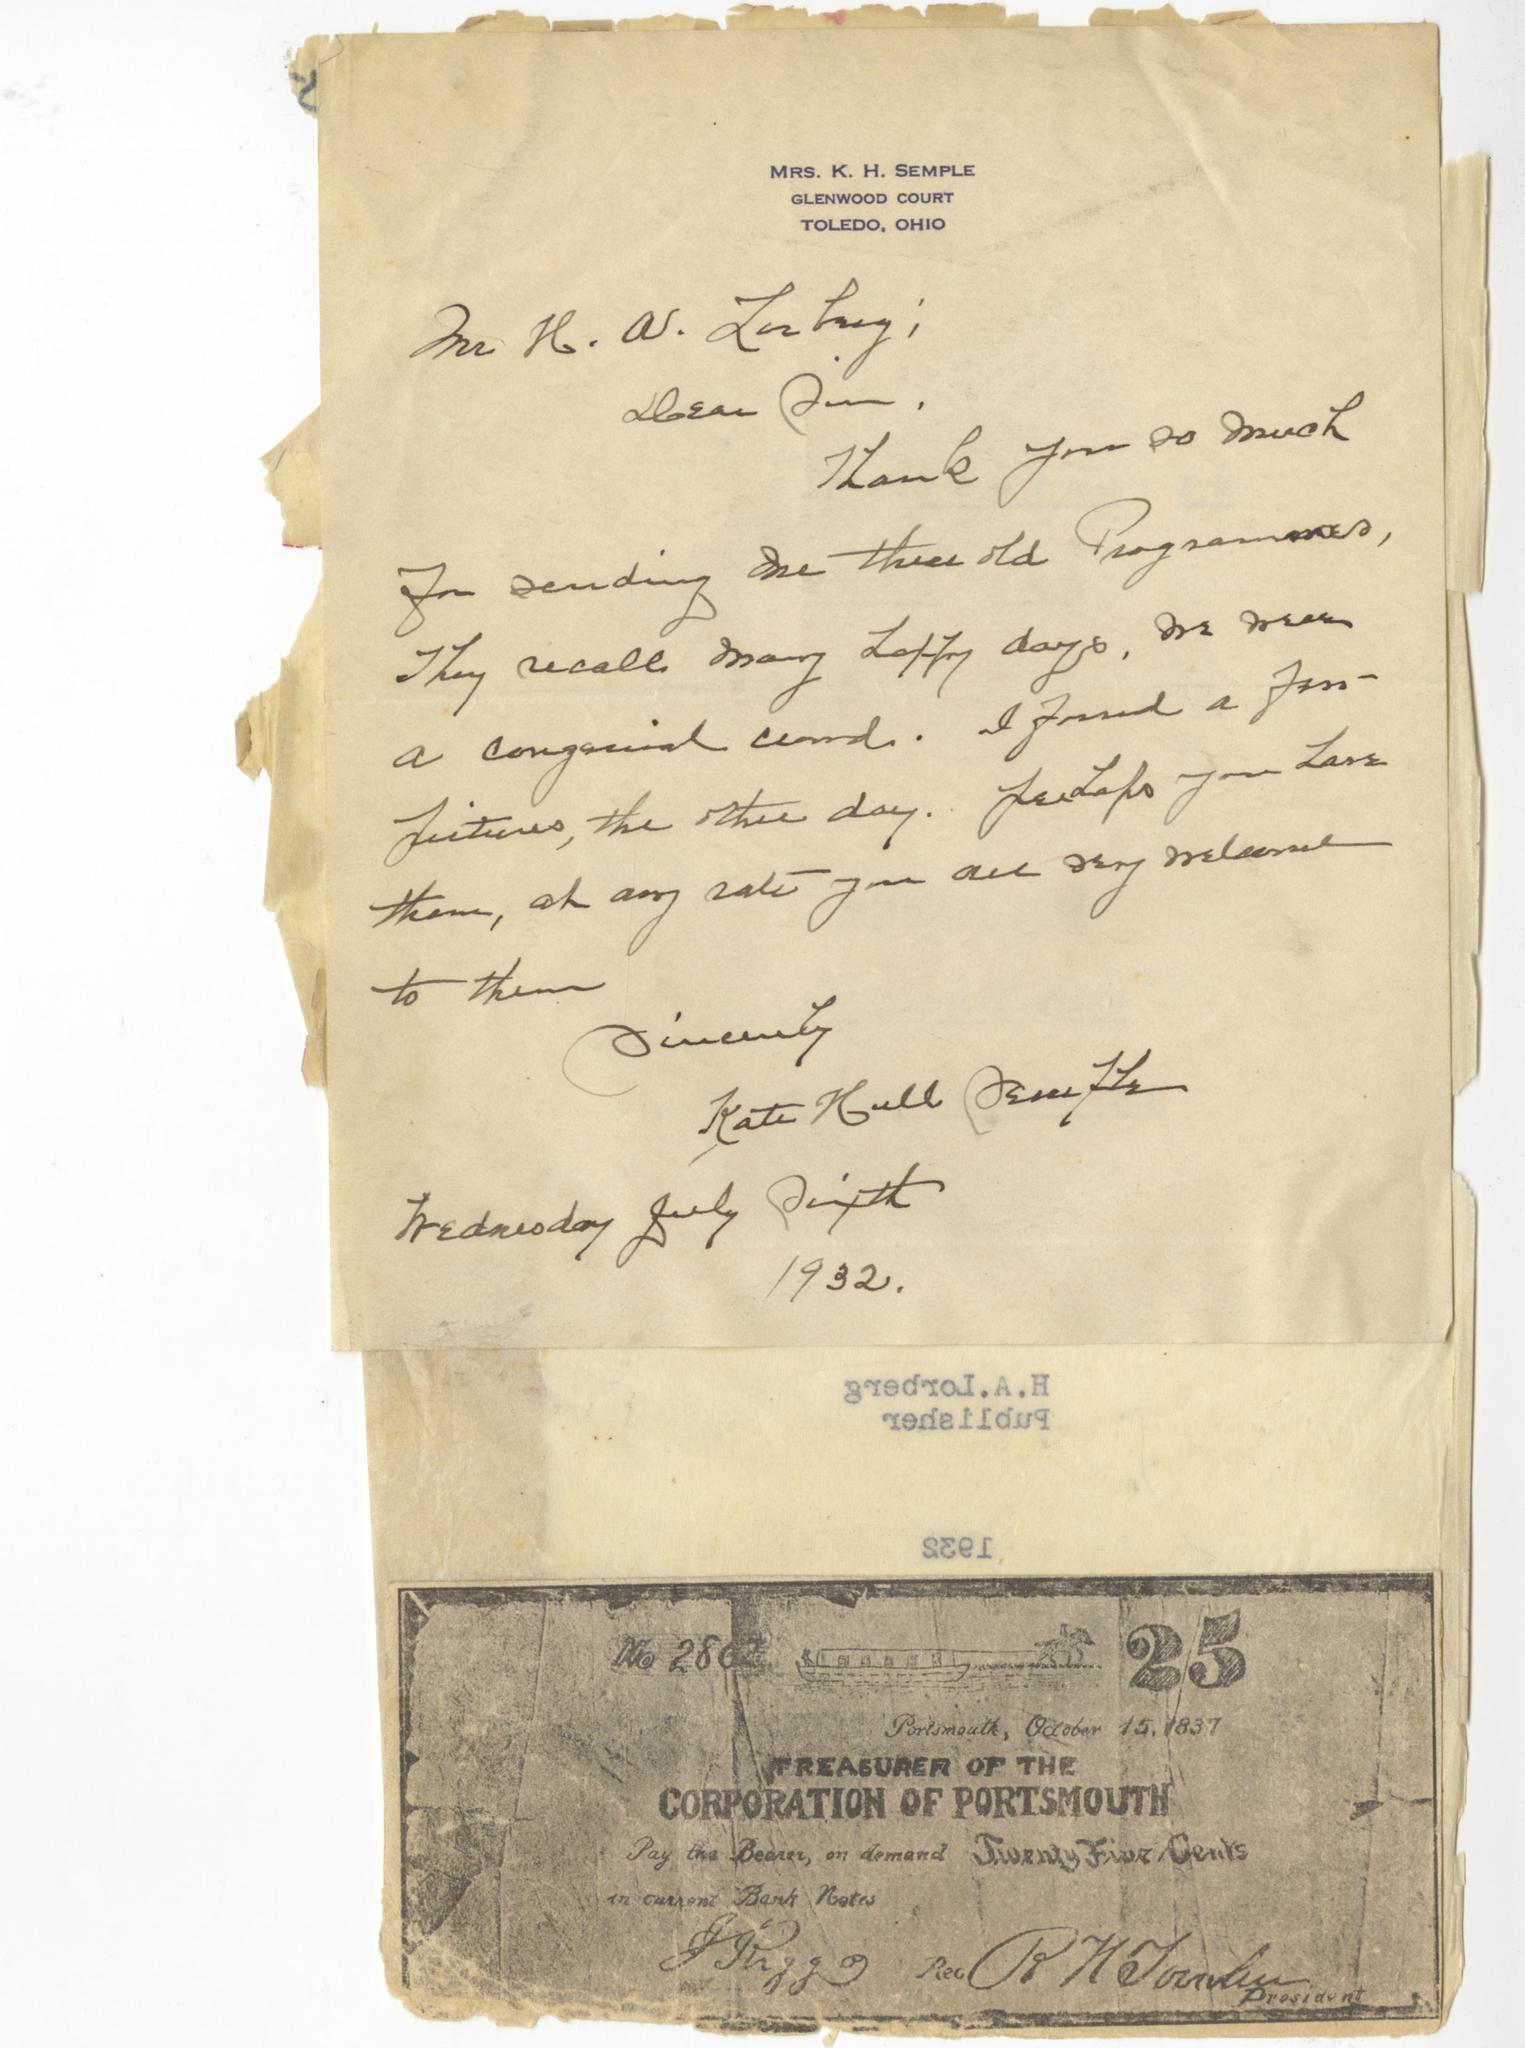 MRS. K. H. SEMPLE
GLENWOOD COURT
TOLEDO, OHIO
Mr H. A. Lorberg;
Dear Sir,
Thank you so much
for sending me three old Programmes,
They recall many happy days, we were
a congenial crowd. I found a few
pictures, the other day. perhaps you have
them, at any rate you are very welcome
to them
Sincerely
Kate Hull Semple
Wednesday July Sixth
1932.
H.A.Lorberg
Publisher
1932
No 2862 25
Portsmouth, October 15, 1837
TREASURER OF THE
CORPORATION OF PORTSMOUTH
Pay the Bearer, on demand Twenty Five Cents
in current Bank Notes
J Riggs Rec R H
President